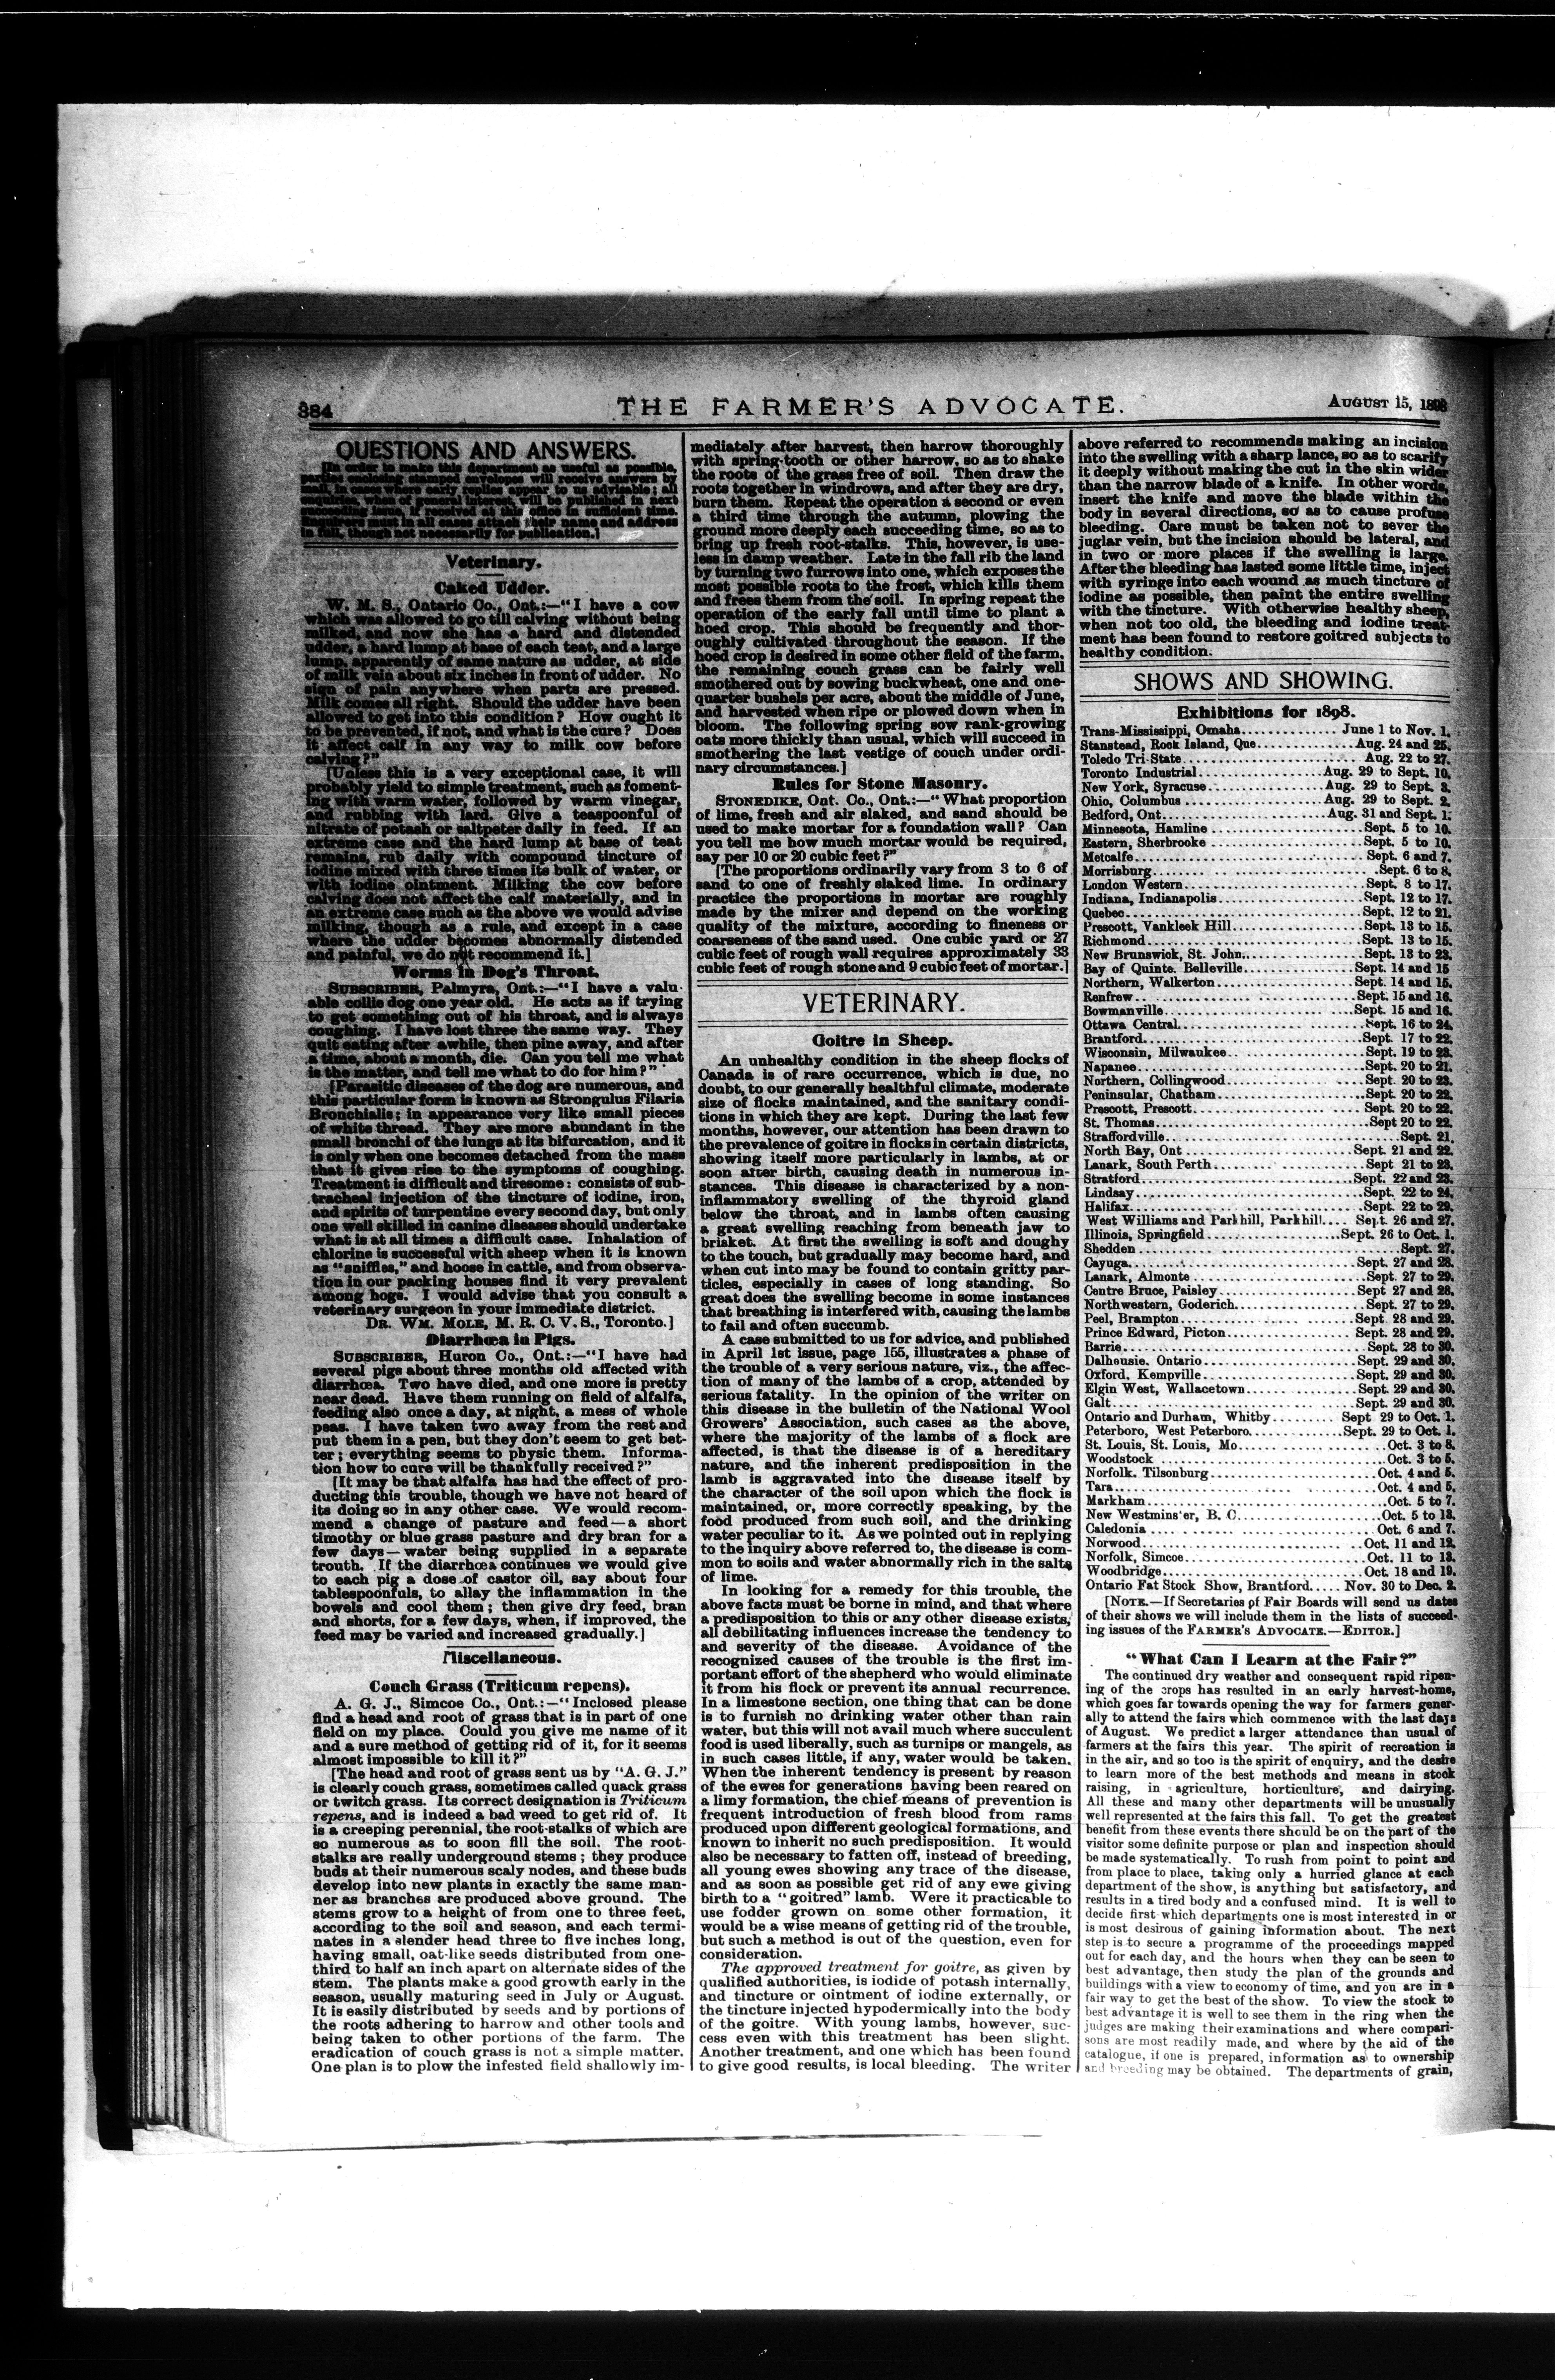 384
THE FARMER'S ADVOCATE.
AUGUST 15, 1898
QUESTIONS AND ANSWERS.
[In order to make this department as useful as possible,
parties enclosing stamped envelopes will receive answers by
mail, in cases where early replies appear to us advisable; all
enquiries, when of general interest, will be published in next
succeeding issue, if received at this office in sufficient time.
Enquirers must in all cases attach their name and address
in full, though not necessarily for publication.]
Veterinary.
Caked Udder.
W. M. S., Ontario Co., Ont.:—"I have a cow
which was allowed to go till calving without being
milked, and now she has a hard and distended
udder, a hard lump at base of each teat, and a large
lump, apparently of same nature as udder, at side
of milk vein about six inches in front of udder. No
sign of pain anywhere when parts are pressed.
Milk comes all right. Should the udder have been
allowed to get into this condition? How ought it
to be prevented, if not, and what is the cure? Does
it affect calf in any way to milk cow before
calving?"
[Unless this is a very exceptional case, it will
probably yield to simple treatment, such as foment-
ing with warm water, followed by warm vinegar,
and rubbing with lard. Give a teaspoonful of
nitrate of potash or saltpeter daily in feed. If an
extreme case and the hard lump at base of teat
remains, rub daily with compound tincture of
iodine mixed with three times its bulk of water, or
with iodine ointment. Milking the cow before
calving does not affect the calf materially, and in
an extreme case such as the above we would advise
milking, though as a rule, and except in a case
where the udder becomes abnormally distended
and painful, we do not recommend it.]
Worms in Dog's Throat.
SUBSCRIBER, Palmyra, Ont.:—"I have a valu-
able collie dog one year old. He acts as if trying
to get something out of his throat, and is always
coughing. I have lost three the same way. They
quit eating after awhile, then pine away, and after
a time, about a month, die. Can you tell me what
is the matter, and tell me what to do for him?"
[Parasitic diseases of the dog are numerous, and
this particular form is known as Strongulus Filaria
Bronchialis; in appearance very like small pieces
of white thread. They are more abundant in the
small bronchi of the lungs at its bifurcation, and it
is only when one becomes detached from the mass
that it gives rise to the symptoms of coughing.
Treatment is difficult and tiresome: consists of sub-
tracheal injection of the tincture of iodine, iron,
and spirits of turpentine every second day, but only
one well skilled in canine diseases should undertake
what is at all times a difficult case. Inhalation of
chlorine is successful with sheep when it is known
as "sniffles," and hoose in cattle, and from observa-
tion in our packing houses find it very prevalent
among hogs. I would advise that you consult a
veterinary surgeon in your immediate district.
DR. WM. MOLE, M. R. C. V. S., Toronto.]
Diarrhœa in Pigs.
SUBSCRIBER, Huron Co., Ont.:—"I have had
several pigs about three months old affected with
diarrhœa. Two have died, and one more is pretty
near dead. Have them running on field of alfalfa,
feeding also once a day, at night, a mess of whole
peas. I have taken two away from the rest and
put them in a pen, but they don't seem to get bet-
ter; everything seems to physic them. Informa-
tion how to cure will be thankfully received?"
[It may be that alfalfa has had the effect of pro-
ducting this trouble, though we have not heard of
its doing so in any other case. We would recom-
mend a change of pasture and feed—a short
timothy or blue grass pasture and dry bran for a
few days—water being supplied in a separate
trouth. If the diarrhœa continues we would give
to each pig a dose of castor oil, say about four
tablespoonfuls, to allay the inflammation in the
bowels and cool them; then give dry feed, bran
and shorts, for a few days, when, if improved, the
feed may be varied and increased gradually.]
Miscellaneous.
Couch Grass (Triticum repens).
A. G. J., Simcoe Co., Ont.:—"Inclosed please
find a head and root of grass that is in part of one
field on my place. Could you give me name of it
and a sure method of getting rid of it, for it seems
almost impossible to kill it?"
[The head and root of grass sent us by "A. G. J."
is clearly couch grass, sometimes called quack grass
or twitch grass. Its correct designation is Triticum
repens, and is indeed a bad weed to get rid of. It
is a creeping perennial, the root-stalks of which are
so numerous as to soon fill the soil. The root-
stalks are really underground stems; they produce
buds at their numerous scaly nodes, and these buds
develop into new plants in exactly the same man-
ner as branches are produced above ground. The
stems grow to a height of from one to three feet,
according to the soil and season, and each termi-
nates in a slender head three to five inches long,
having small, oat-like seeds distributed from one-
third to half an inch apart on alternate sides of the
stem. The plants make a good growth early in the
season, usually maturing seed in July or August.
It is easily distributed by seeds and by portions of
the roots adhering to harrow and other tools and
being taken to other portions of the farm. The
eradication of couch grass is not a simple matter.
One plan is to plow the infested field shallowly im-
mediately after harvest, then harrow thoroughly
with spring-tooth or other harrow, so as to shake
the roots of the grass free of soil. Then draw the
roots together in windrows, and after they are dry,
burn them. Repeat the operation a second or even
a third time through the autumn, plowing the
ground more deeply each succeeding time, so as to
bring up fresh root-stalks. This, however, is use-
less in damp weather. Late in the fall rib the land
by turning two furrows into one, which exposes the
most possible roots to the frost, which kills them
and frees them from the soil. In spring repeat the
operation of the early fall until time to plant a
hoed crop. This should be frequently and thor-
oughly cultivated throughout the season. If the
hoed crop is desired in some other field of the farm,
the remaining couch grass can be fairly well
smothered out by sowing buckwheat, one and one-
quarter bushels per acre, about the middle of June,
and harvested when ripe or plowed down when in
bloom. The following spring sow rank-growing
oats more thickly than usual, which will succeed in
smothering the last vestige of couch under ordi-
nary circumstances.]
Rules for Stone Masonry.
STONEDIKE, Ont. Co., Ont.:—"What proportion
of lime, fresh and air slaked, and sand should be
used to make mortar for a foundation wall? Can
you tell me how much mortar would be required,
say per 10 or 20 cubic feet?"
[The proportions ordinarily vary from 3 to 6 of
sand to one of freshly slaked lime. In ordinary
practice the proportions in mortar are roughly
made by the mixer and depend on the working
quality of the mixture, according to fineness or
coarseness of the sand used. One cubic yard or 27
cubic feet of rough wall requires approximately 33
cubic feet of rough stone and 9 cubic feet of mortar.]
VETERINARY.
Goitre in Sheep.
An unhealthy condition in the sheep flocks of
Canada is of rare occurrence, which is due, no
doubt, to our generally healthful climate, moderate
size of flocks maintained, and the sanitary condi-
tions in which they are kept. During the last few
months, however, our attention has been drawn to
the prevalence of goitre in flocks in certain districts,
showing itself more particularly in lambs, at or
soon after birth, causing death in numerous in-
stances. This disease is characterized by a non-
inflammatory swelling of the thyroid gland
below the throat, and in lambs often causing
a great swelling reaching from beneath jaw to
brisket. At first the swelling is soft and doughy
to the touch, but gradually may become hard, and
when cut into may be found to contain gritty par-
ticles, especially in cases of long standing. So
great does the swelling become in some instances
that breathing is interfered with, causing the lambs
to fail and often succumb.
A case submitted to us for advice, and published
in April 1st issue, page 155, illustrates a phase of
the trouble of a very serious nature, viz., the affec-
tion of many of the lambs of a crop, attended by
serious fatality. In the opinion of the writer on
this disease in the bulletin of the National Wool
Growers' Association, such cases as the above,
where the majority of the lambs of a flock are
affected, is that the disease is of a hereditary
nature, and the inherent predisposition in the
lamb is aggravated into the disease itself by
the character of the soil upon which the flock is
maintained, or, more correctly speaking, by the
food produced from such soil, and the drinking
water peculiar to it. As we pointed out in replying
to the inquiry above referred to, the disease is com-
mon to soils and water abnormally rich in the salts
of lime.
In looking for a remedy for this trouble, the
above facts must be borne in mind, and that where
a predisposition to this or any other disease exists,
all debilitating influences increase the tendency to
and severity of the disease. Avoidance of the
recognized causes of the trouble is the first im-
portant effort of the shepherd who would eliminate
it from his flock or prevent its annual recurrence.
In a limestone section, one thing that can be done
is to furnish no drinking water other than rain
water, but this will not avail much where succulent
food is used liberally, such as turnips or mangels, as
in such cases little, if any, water would be taken.
When the inherent tendency is present by reason
of the ewes for generations having been reared on
a limy formation, the chief means of prevention is
frequent introduction of fresh blood from rams
produced upon different geological formations, and
known to inherit no such predisposition. It would
also be necessary to fatten off, instead of breeding,
all young ewes showing any trace of the disease,
and as soon as possible get rid of any ewe giving
birth to a "goitred" lamb. Were it practicable to
use fodder grown on some other formation, it
would be a wise means of getting rid of the trouble,
but such a method is out of the question, even for
consideration.
The approved treatment for goitre, as given by
qualified authorities, is iodide of potash internally,
and tincture or ointment of iodine externally, or
the tincture injected hypodermically into the body
of the goitre. With young lambs, however, suc-
cess even with this treatment has been slight.
Another treatment, and one which has been found
to give good results, is local bleeding. The writer
above referred to recommends making an incision
into the swelling with a sharp lance, so as to scarify
it deeply without making the cut in the skin wider
than the narrow blade of a knife. In other words,
insert the knife and move the blade within the
body in several directions, so as to cause profuse
bleeding. Care must be taken not to sever the
juglar vein, but the incision should be lateral, and
in two or more places if the swelling is large.
After the bleeding has lasted some little time, inject
with syringe into each wound as much tincture of
iodine as possible, then paint the entire swelling
with the tincture. With otherwise healthy sheep,
when not too old, the bleeding and iodine treat-
ment has been found to restore goitred subjects to
healthy condition.
SHOWS AND SHOWING.
Exhibitions for 1898.
Trans-Mississippi, Omaha............. June 1 to Nov. 1.
Stanstead, Rock Island, Que............. Aug. 24 and 25.
Toledo Tri-State............. Aug. 22 to 27.
Toronto Industrial............. Aug. 29 to Sept. 10.
New York, Syracuse............. Aug. 29 to Sept. 3.
Ohio, Columbus............. Aug. 29 to Sept. 2.
Bedford, Ont............. Aug. 31 and Sept. 1.
Minnesota, Hamline............. Sept. 5 to 10.
Eastern, Sherbrooke............. Sept. 5 to 10.
Metcalfe............. Sept. 6 and 7.
Morrisburg............. Sept. 6 to 8.
London Western............. Sept. 8 to 17.
Indiana, Indianapolis............. Sept. 12 to 17.
Quebec............. Sept. 12 to 21.
Prescott, Vankleek Hill............. Sept. 13 to 15.
Richmond............. Sept. 13 to 15.
New Brunswick, St. John............. Sept. 13 to 23.
Bay of Quinte, Belleville............. Sept. 14 and 15
Northern, Walkerton............. Sept. 14 and 15.
Renfrew............. Sept. 15 and 16.
Bowmanville............. Sept. 15 and 16.
Ottawa Central............. Sept. 16 to 24.
Brantford............. Sept. 17 to 22.
Wisconsin, Milwaukee............. Sept. 19 to 23.
Napanee............. Sept. 20 to 21.
Northern, Collingwood............. Sept. 20 to 23.
Peninsular, Chatham............. Sept. 20 to 22.
Prescott, Prescott............. Sept. 20 to 22.
St. Thomas............. Sept 20 to 22.
Straffordville............. Sept. 21.
North Bay, Ont............. Sept. 21 and 22.
Lanark, South Perth............. Sept 21 to 23.
Stratford............. Sept. 22 and 23.
Lindsay............. Sept. 22 to 24.
Halifax............. Sept. 22 to 29.
West Williams and Parkhill, Parkhill.... Sept. 26 and 27.
Illinois, Springfield............. Sept. 26 to Oct. 1.
Shedden............. Sept. 27.
Cayuga............. Sept. 27 and 28.
Lanark, Almonte............. Sept. 27 to 29.
Centre Bruce, Paisley............. Sept 27 and 28.
Northwestern, Goderich............. Sept. 27 to 29.
Peel, Brampton............. Sept 28 and 29.
Prince Edward, Picton............. Sept. 28 and 29.
Barrie............. Sept. 28 to 30.
Dalhousie, Ontario............. Sept. 29 and 30.
Oxford, Kempville............. Sept. 29 and 30.
Elgin West, Wallacetown............. Sept. 29 and 30.
Galt............. Sept. 29 and 30.
Ontario and Durham, Whitby............. Sept 29 to Oct. 1.
Peterboro, West Peterboro............. Sept. 29 to Oct. 1.
St. Louis, St. Louis, Mo............. Oct. 3 to 8.
Woodstock............. Oct. 3 to 5.
Norfolk, Tilsonburg............. Oct. 4 and 5.
Tara............. Oct. 4 and 5.
Markham............. Oct. 5 to 7.
New Westminster, B. C............. Oct. 5 to 13.
Caledonia............. Oct. 6 and 7.
Norwood............. Oct. 11 and 12.
Norfolk, Simcoe............. Oct. 11 to 13.
Woodbridge............. Oct. 18 and 19.
Ontario Fat Stock Show, Brantford..... Nov. 30 to Dec. 2.
[NOTE.—If Secretaries of Fair Boards will send us dates
of their shows we will include them in the lists of succeed-
ing issues of the FARMER'S ADVOCATE.—EDITOR.]
"What Can I Learn at the Fair?"
The continued dry weather and consequent rapid ripen-
ing of the crops has resulted in an early harvest-home,
which goes far towards opening the way for farmers gener-
ally to attend the fairs which commence with the last days
of August. We predict a larger attendance than usual of
farmers at the fairs this year. The spirit of recreation is
in the air, and so too is the spirit of enquiry, and the desire
to learn more of the best methods and means in stock
raising, in agriculture, horticulture, and dairying.
All these and many other departments will be unusually
well represented at the fairs this fall. To get the greatest
benefit from these events there should be on the part of the
visitor some definite purpose or plan and inspection should
be made systematically. To rush from point to point and
from place to place, taking only a hurried glance at each
department of the show, is anything but satisfactory, and
results in a tired body and a confused mind. It is well to
decide first which departments one is most interested in or
is most desirous of gaining information about. The next
step is to secure a programme of the proceedings mapped
out for each day, and the hours when they can be seen to
best advantage, then study the plan of the grounds and
buildings with a view to economy of time, and you are in a
fair way to get the best of the show. To view the stock to
best advantage it is well to see them in the ring when the
judges are making their examinations and where compari-
sons are most readily made, and where by the aid of the
catalogue, if one is prepared, information as to ownership
and breeding may be obtained. The departments of grain,